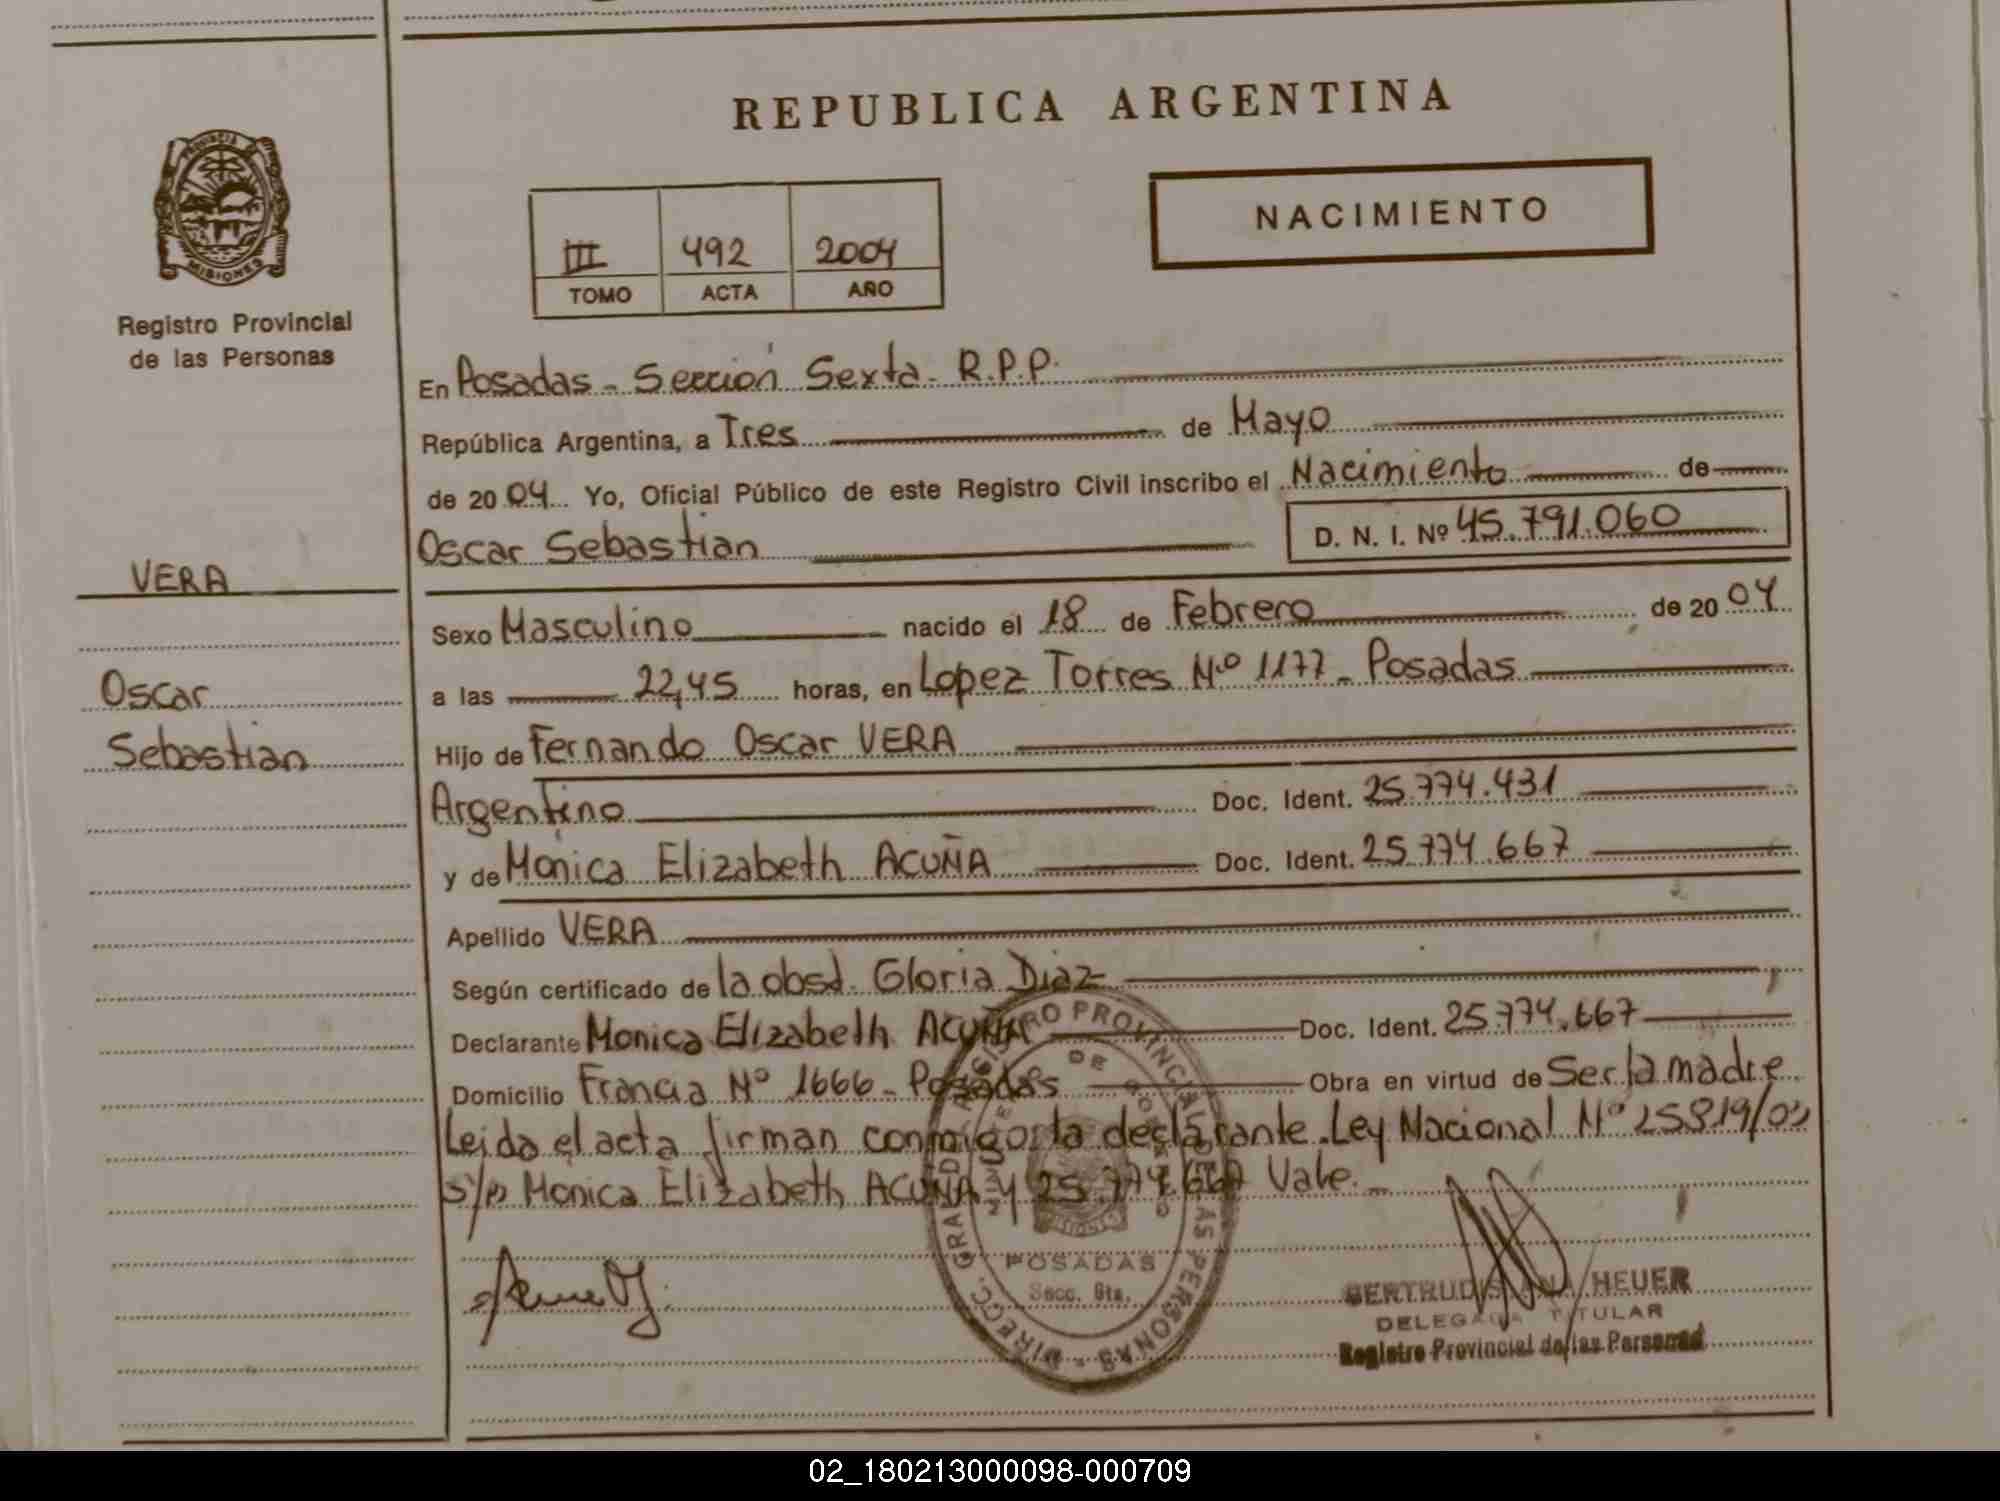 REPUBLICA ARGENTINA
PROVINCIA
MISIONES
Registro Provincial
de las Personas
NACIMIENTO
III 492 2004
TOMO ACTA AÑO
En Posadas - Sección Sexta - R.P.P.
República Argentina, a Tres de Mayo
de 2004 Yo, Oficial Público de este Registro Civil inscribo el Nacimiento de
Oscar Sebastian D. N. I. Nº 45.791.060
VERA
Oscar
Sebastian
Sexo Masculino nacido el 18 de Febrero de 2004
a las 22,45 horas, en Lopez Torres Nº 1177 - Posadas
Hijo de Fernando Oscar VERA
Argentino Doc. Ident. 25.774.431
y de Monica Elizabeth ACUÑA Doc. Ident. 25.774.667
Apellido VERA
Según certificado de la obsd. Gloria Diaz
Declarante Monica Elizabeth ACUÑA Doc. Ident. 25.774.667
Domicilio Francia Nº 1666 - Posadas Obra en virtud de Ser la madre
Leida el acta firman conmigo la declarante. Ley Nacional Nº 25819/03
s/p Monica Elizabeth ACUÑA y 25.774.667 Vale. -
DIRECC. GRAL. DE REGISTRO PROVINCIAL DE LAS PERSONAS
POSADAS
Secc. 6ta.
GERTRUDIS ANA HEUER
DELEGADA TITULAR
Registro Provincial de las Personas
02_180213000098-000709